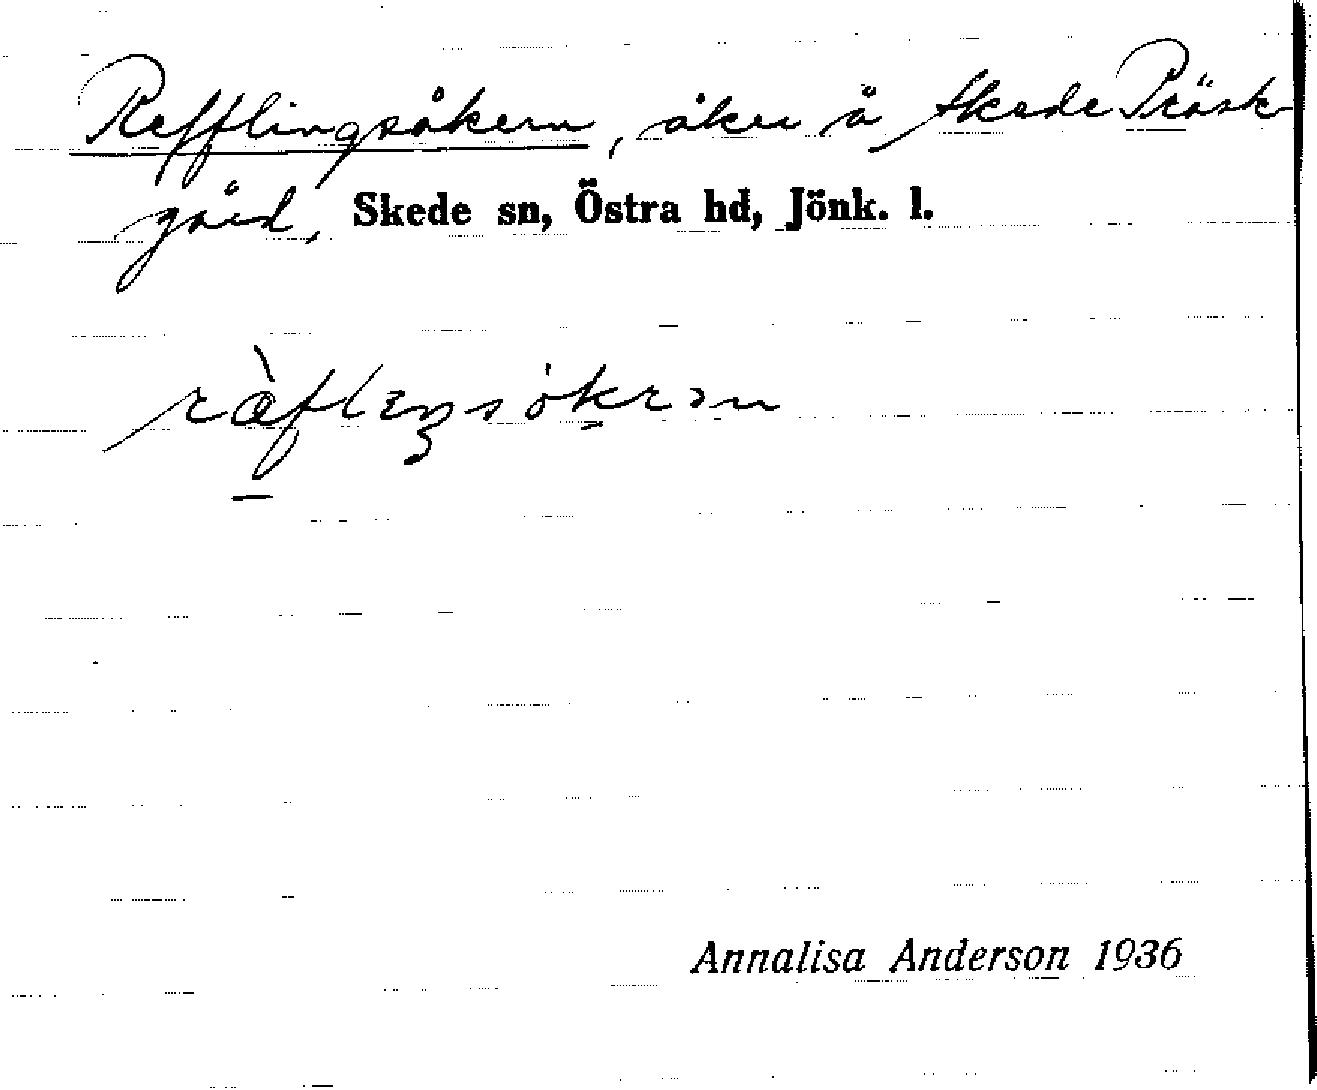 Refflingsåkern, åker å Skede Präst-
gård, Skede sn, Östra hd, Jönk. l.
Annalisa Anderson 1936